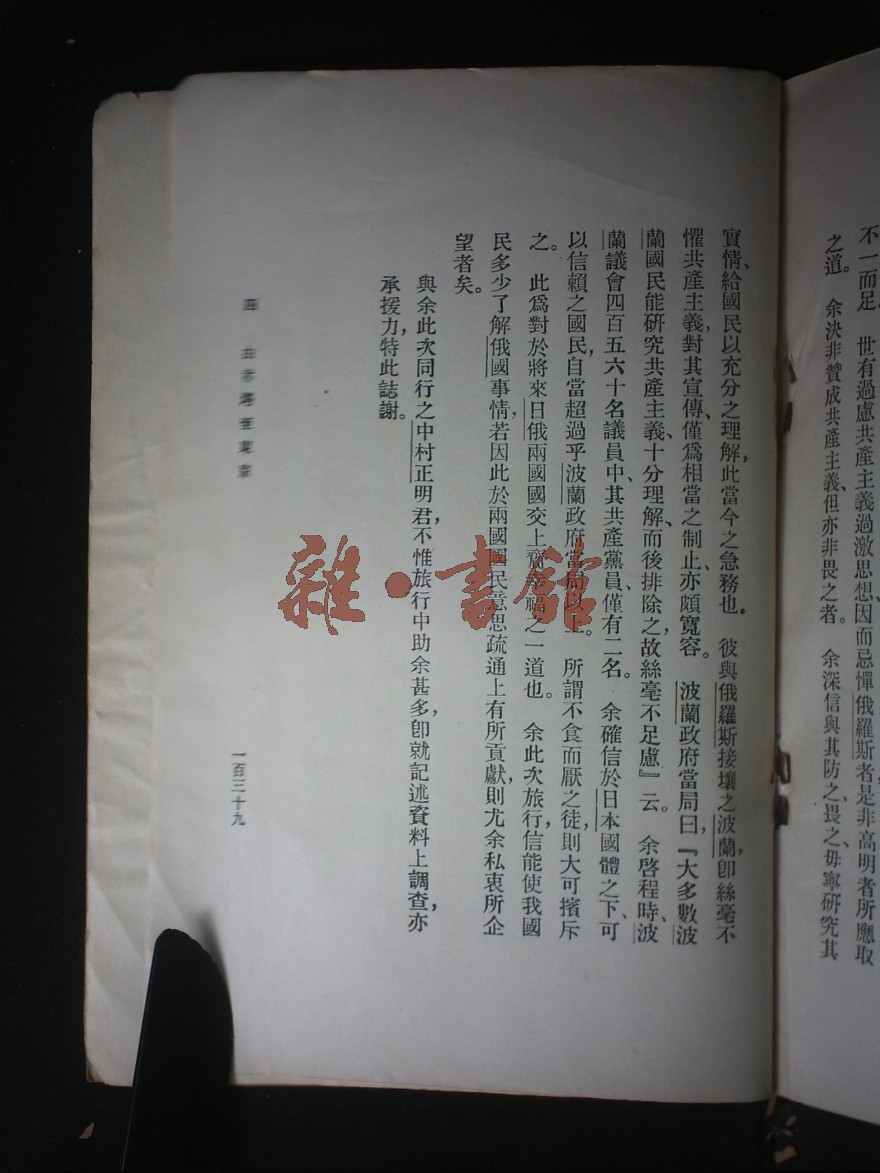 不一而足。世有過慮共產主義過激思想、因而忌憚俄羅斯者、是非高明者所應取
之道。余決非贊成共產主義、但亦非畏之者。余深信與其防之、畏之、毋寧研究其
實情、給國民以充分之理解、此當今之急務也。彼與俄羅斯接壤之波蘭、卽絲毫不
懼共產主義、對其宣傳、僅爲相當之制止、亦頗寬容。波蘭政府當局曰、『大多數波
蘭國民能研究共產主義、十分理解、而後排除之、故絲毫不足慮』云。余啓程時、波
蘭議會四百五六十名議員中、其共產黨員、僅有二名。余確信於日本國體之下、可
以信賴之國民、自當超過乎波蘭政府當局以上。所謂不食而厭之徒、則大可擯斥
之。此爲對於將來日俄兩國國交上齎幸福之一道也。余此次旅行、信能使我國
民多少了解俄國事情、若因此於兩國國民意思疏通上有所貢獻、則尤余私衷所企
望者矣。
與余此次同行之中村正明君、不惟旅行中助余甚多、卽就記述資料上調查、亦
承援力、特此誌謝。
一百三十九
雜·書館